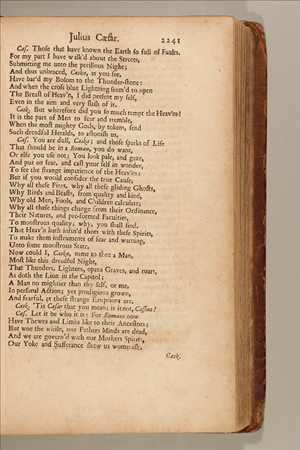 Julius Cæsar. 2241
Cas. Those that have known the Earth so full of Faults.
For my part I have walk'd about the Streets,
Submitting me unto the perillous Night;
And thus unbraced, Caska, as you see,
Have bar'd my Bosom to the Thunder-stone:
And when the cross blue Lightning seem'd to open
The Breast of Heav'n, I did present my self,
Even in the aim and very flash of it.
Cask. But wherefore did you so much tempt the Heav'ns?
It is the part of Men to fear and tremble,
When the most mighty Gods, by tokens, send
Such dreadful Heralds, to astonish us.
Cas. You are dull, Caska; and those sparks of Life
That should be in a Roman, you do want,
Or else you use not; You look pale, and gaze,
And put on fear, and cast your self in wonder,
To see the strange impatience of the Heav'ns:
But if you would consider the true Cause,
Why all these Fires, why all these gliding Ghosts,
Why Birds and Beasts, from quality and kind,
Why old Men, Fools, and Children calculate;
Why all these things change from their Ordinance,
Their Natures, and pre-formed Faculties,
To monstrous quality; why, you shall find,
That Heav'n hath infus'd them with these Spirits,
To make them instruments of fear and warning,
Unto some monstrous State.
Now could I, Caska, name to thee a Man,
Most like this dreadful Night,
That Thunders, Lightens, opens Graves, and roars,
As doth the Lion in the Capitol;
A Man no mightier than thy self, or me,
In personal Action; yet prodigious grown,
And fearful, as these strange Eruptions are.
Cask. 'Tis Cæsar that you mean; is it not, Cassius?
Cas. Let it be who it is: For Romans now
Have Thewes and Limbs like to their Ancestors;
But woe the while, our Fathers Minds are dead,
And we are govern'd with our Mothers Spirits,
Our Yoke and Sufferance shew us womanish.
Cask.